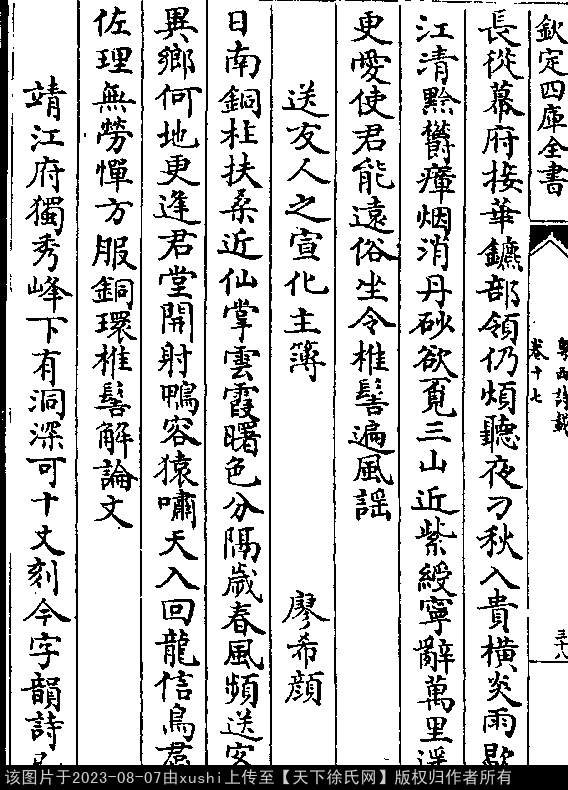 欽定四庫全書
粵西詩載
卷十七
三十八
長從幕府接華鑣部領仍煩聽夜刁秋入貴橫炎雨歇
江清黔鬱瘴烟消丹砂欲覓三山近紫綬寧辭萬里遥
更愛使君能遠俗坐令椎髻遍風謡
送友人之宣化主簿 廖希顔
日南銅柱扶桑近仙掌雲霞曙色分隔歲春風頻送客
異鄉何地更逢君堂開射鴨容猿嘯天入回龍信鳥羣
佐理無勞憚方服銅環椎髻解論文
靖江府獨秀峰下有洞深可十丈刻今字韻詩
该图片于2023-08-07由xushi上传至【天下徐氏网】版权归作者所有